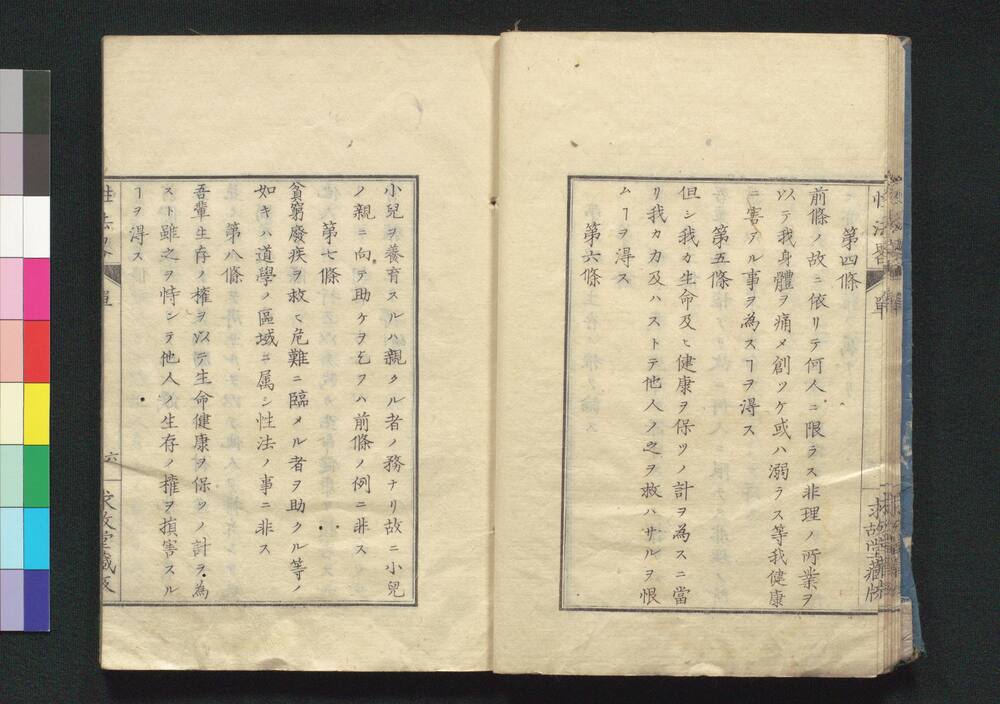 性法畧
單
求故堂藏版
第四條
前條ノ故ニ依リテ何人ニ限ラス非理ノ所業ヲ
以テ我身體ヲ痛メ創ツケ或ハ溺ラス等我健康
ニ害アル事ヲ為スヿヲ得ス
第五條
但シ我カ生命及ヒ健康ヲ保ツノ計ヲ為スニ當
リ我カ力及ハストテ他人ノ之ヲ救ハサルヲ恨
ムヿヲ得ス
第六條
小兒ヲ養育スルハ親タル者ノ務ナリ故ニ小兒
ノ親ニ向テ助ケヲ乞フハ前條ノ例ニ非ス
第七條
貧窮廢疾ヲ救ヒ危難ニ臨メル者ヲ助クル等ノ
如キハ道學ノ區域ニ属シ性法ノ事ニ非ス
第八條
吾輩生存ノ權ヲ以テ生命健康ヲ保ツノ計ヲ為
スト雖之ヲ恃ンテ他人ノ生存ノ權ヲ損害スル
ヿヲ得ス
性法畧
單
六
求故堂藏版